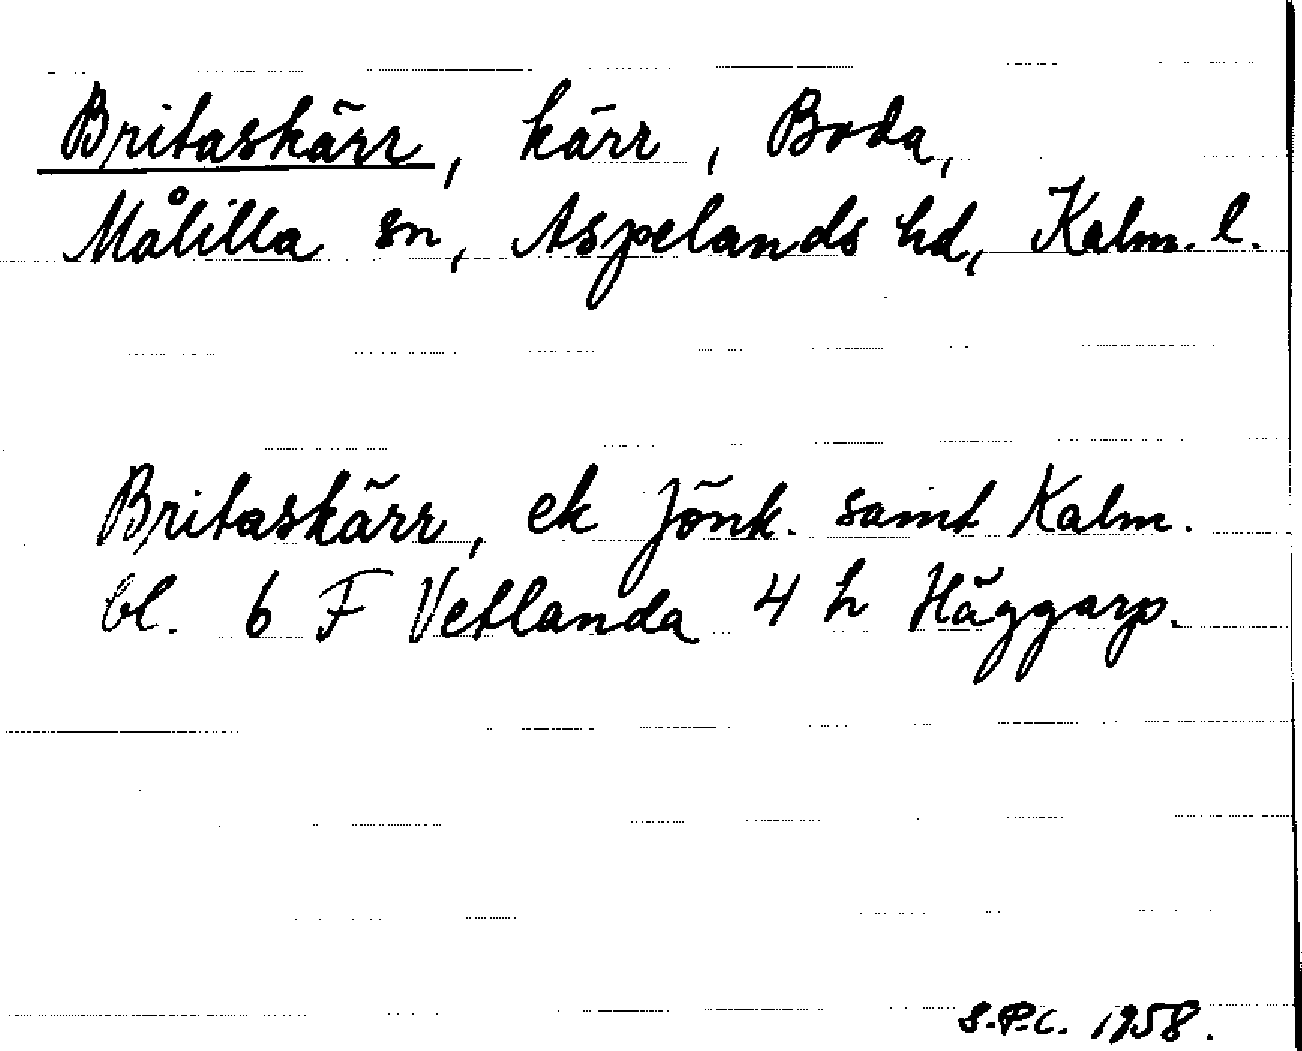 Britaskärr, kärr, Boda,
Målilla sn, Aspelands hd, Kalm. l.
Britaskärr, ek Jönk. samt Kalm.
bl. 6 F Vetlanda 4 h Häggarp.
S.P.C. 1958.